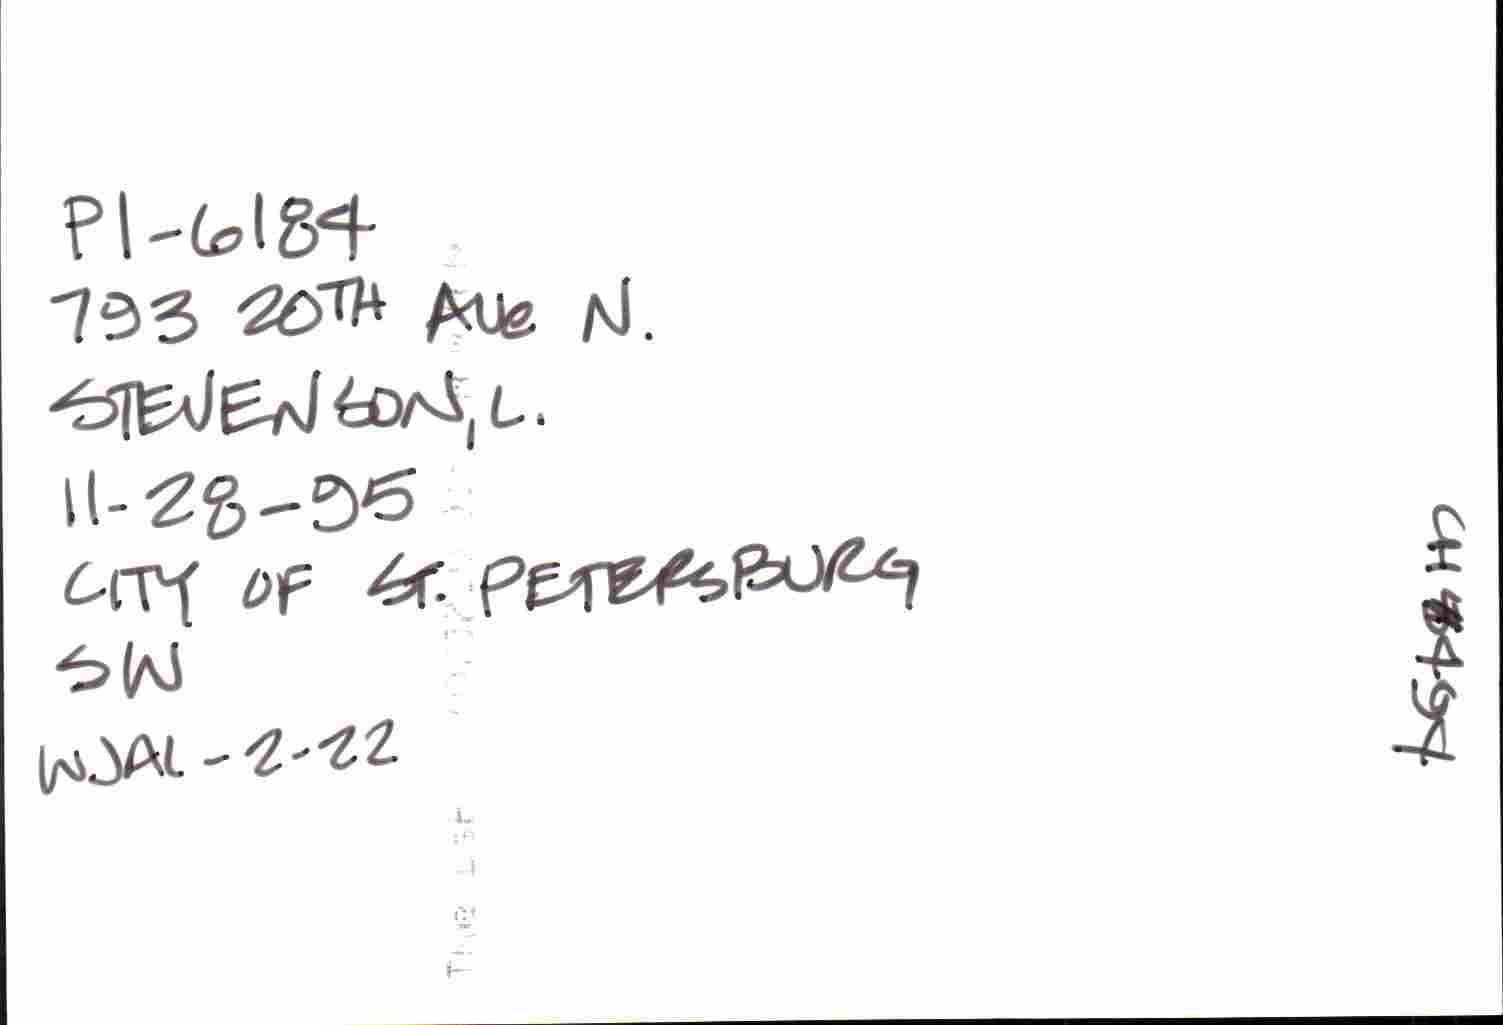 PI-6184
793 20TH Ave N.
STEVENSON, L.
11-28-95
CITY OF ST. PETERSBURG
SW
WJAL-2-22